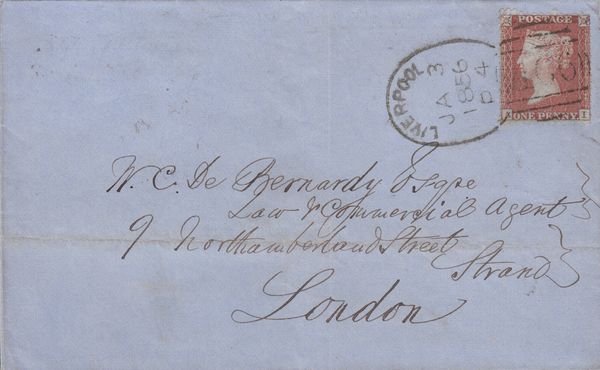 POSTAGE
ONE PENNY
I
LIVERPOOL
JA 3
1856
W. C. De Bernardy Esqre
Law & Commercial Agent
9 Northamberland Street
Strand
London